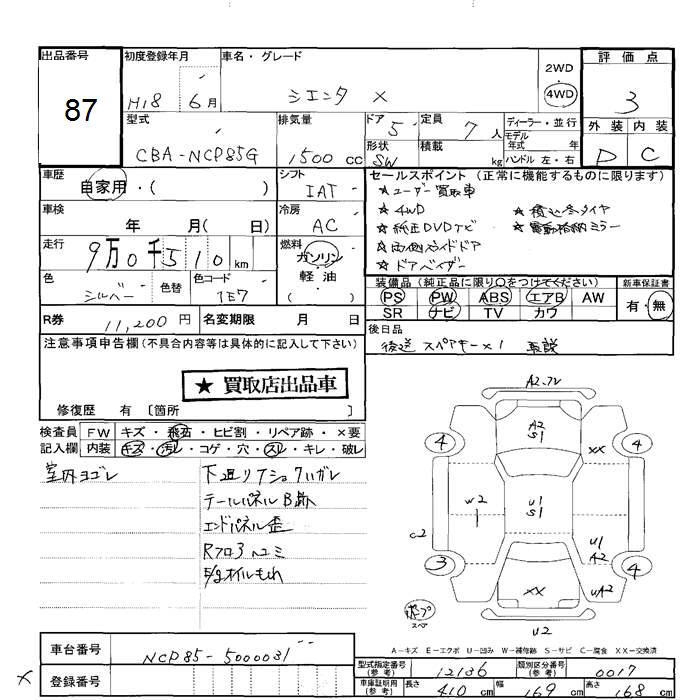 出品番号
87
初度登録年月
H18 6月
車名・グレード
シエンタ X
2WD
4WD
評価点
3
外装 内装
D C
型式
CBA-NCP85G
排気量
1500 cc
ドア 5
定員 7人
形状 SW
積載 kg
ディーラー・並行
モデル年式 年
ハンドル 左・右
車歴
自家用・( )
シフト IAT
車検 年 月( 日)
冷房 AC
走行 9万0千510km
燃料 ガソリン
軽油
( )
色 シルバー 色替
色コード 1E7
セールスポイント(正常に機能するものに限ります)
★ユーザー買取車
★4WD ★積込冬タイヤ
★純正DVDナビ ★電動格納ミラー
★両側スライドドア
★ドアバイザー
装備品(純正品に限り○をつけてください)
新車保証書
PS PW ABS エアB AW
SR ナビ TV カワ
有・無
R券 11,200円
名変期限 月 日
後日品
後送 スペアキー×1 取説
注意事項申告欄(不具合内容等は具体的に記入して下さい)
★買取店出品車
修復歴 有 〔箇所 〕
検査員 FW キズ・飛石・ヒビ割・リペア跡・×要
記入欄 内装 キズ・汚レ・コゲ・穴・スレ・キレ・破レ
室内ヨゴレ
テールパネルB跡
エンドパネル歪
E/gオイルもれ
A2.7V
4
A2
S1
XX
4
W2
U1
S1
C2
U1
A2
3
XX
UA2
4
U2
スペア
A-キズ E-エクボ U-凹み W-補修跡 S-サビ C-腐食 XX-交換済
車台番号
NCP85-5000031
X
登録番号
型式指定番号(参考)
12136
類別区分番号(参考)
0017
車庫証明用(参考)
長さ 410 cm
幅 169 cm
高さ 168 cm